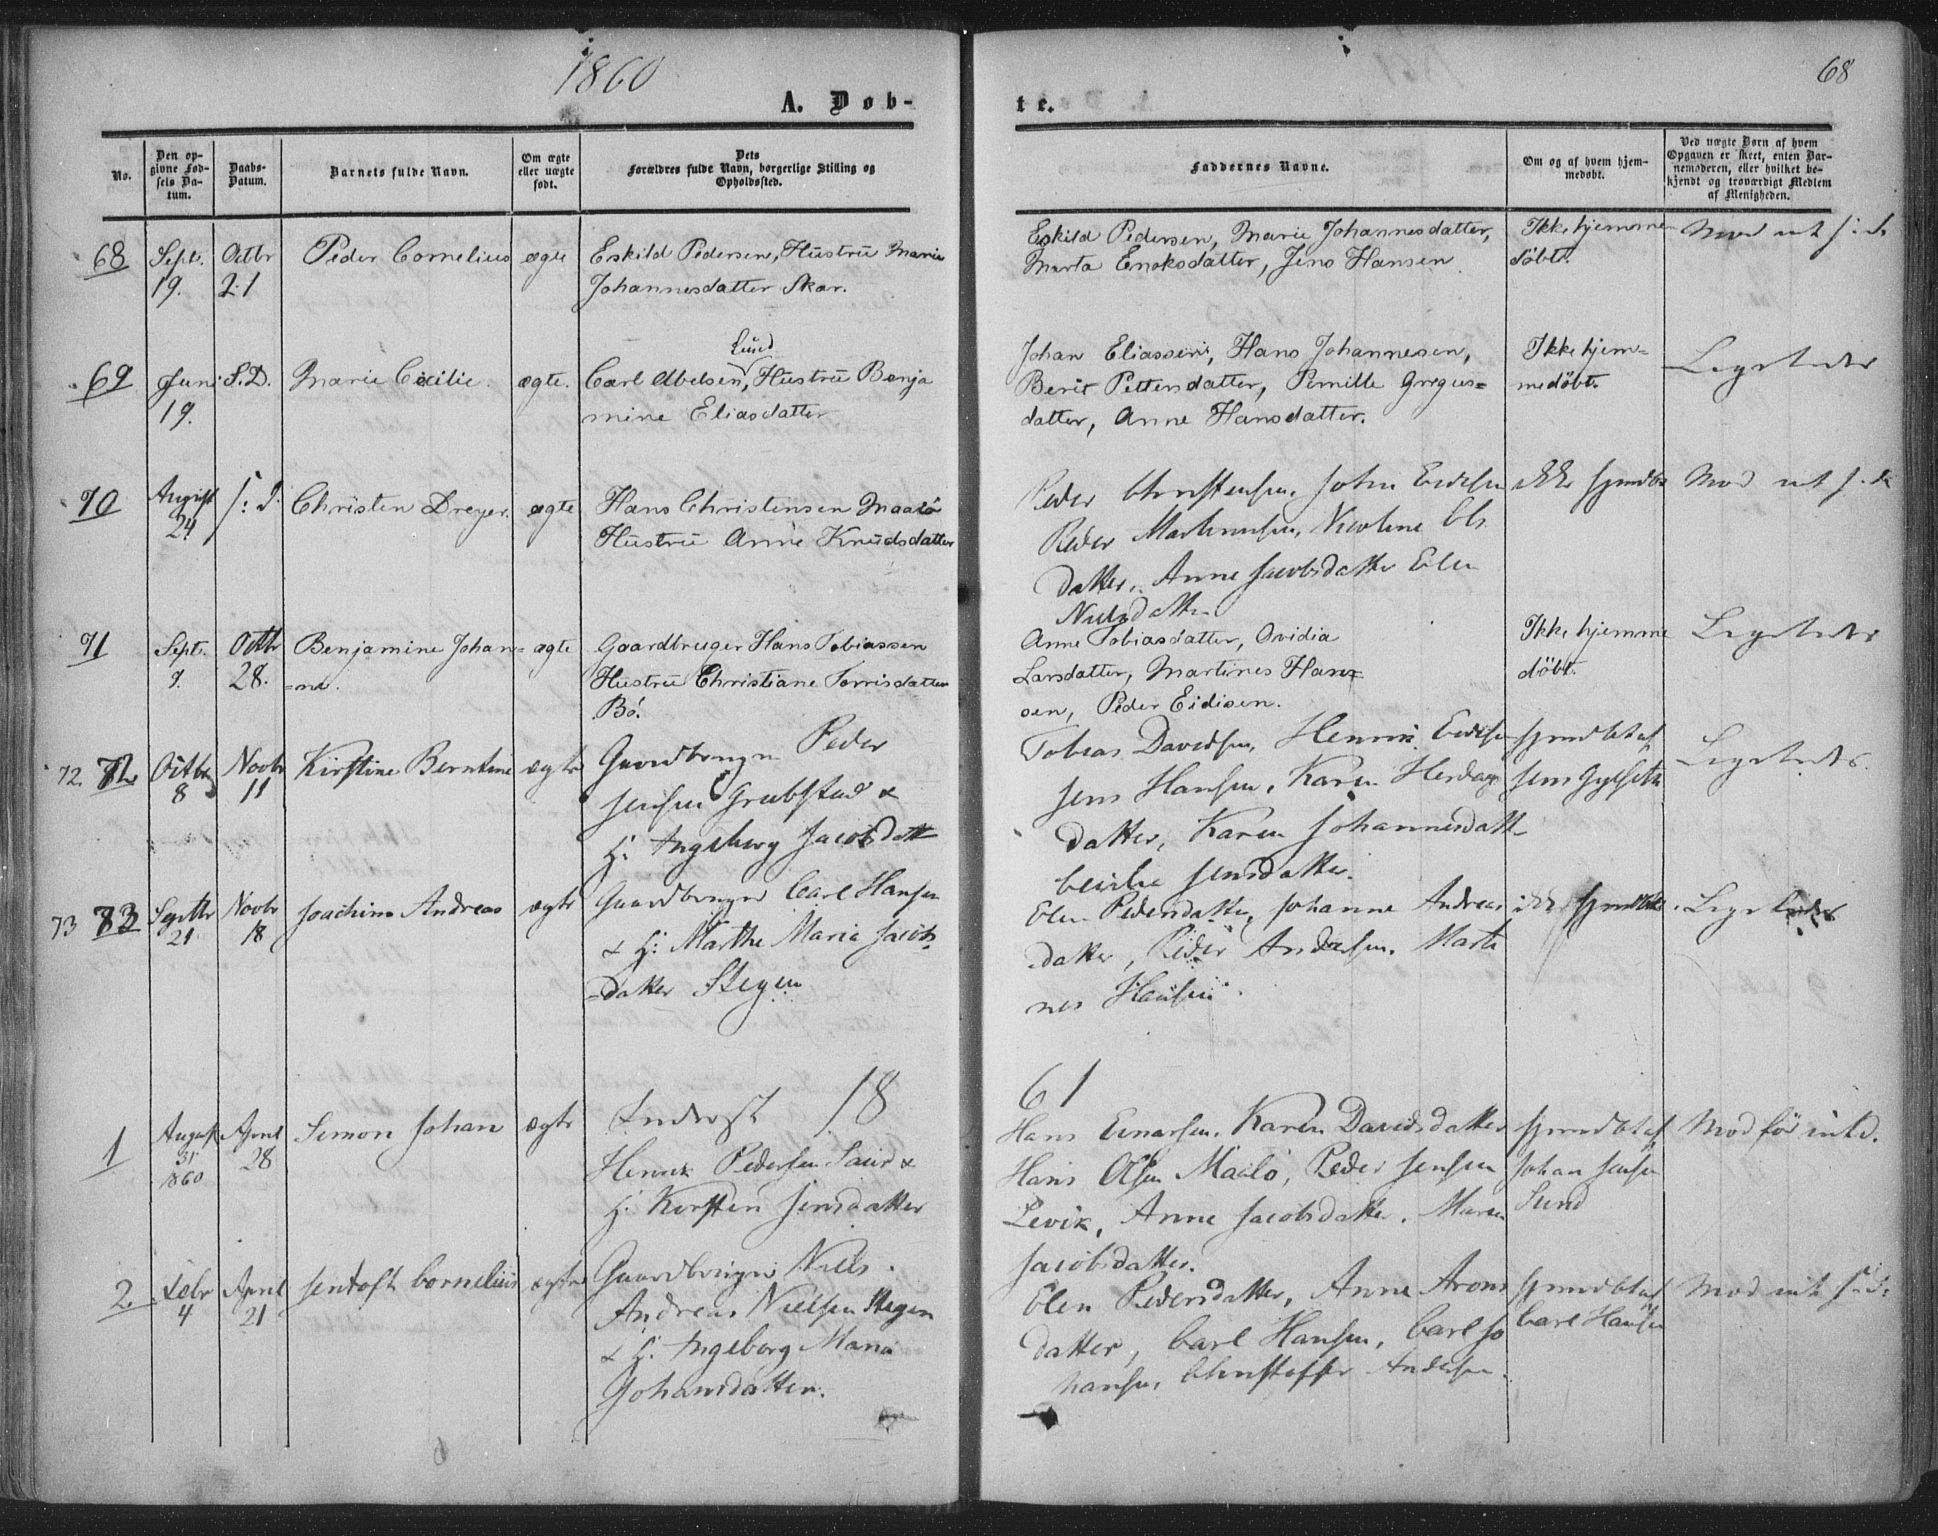 1860
68
A. Døb-
te.
No.
Den op-
givne Fød-
sels Da-
tum.
Daabs-
Datum.
Barnets fulde Navn.
Om ægte
eller uægte
født.
Dets
Forældres fulde Navn, borgerlige Stilling og
Opholdssted.
Faddernes Navne.
Om og af hvem hjem-
medøbt.
Ved uægte Børn af hvem
Opgaven er skeet, enten Bar-
nemoderen, eller hvilket be-
kjendt og troværdigt Medlem
af Menigheden.
68
Septr.
19.
Octbr
21
Peder Cornelius
ægte
Eskild Pedersen, Hustru Marie
Johannesdatter Skar.
Eskild Pedersen, Marie Johannesdatter,
Marta Enoksdatter, Jens Hansen
Ikke hjemme
døbt.
69
Juni
19.
S.D.
Marie Cecilie.
ægte.
Lund
Carl Abelsen, Hustru Benja
mine Eliasdatter
Johan Eliassen, Hans Johannesen,
Berit Pettersdatter, Pernille Gregus=
datter, Anne Hansdatter.
Ikke hjem=
medøbt.
70
August
24
s: d.
Christen Dreyer.
ægte
Hans Christensen Maalø
Hustru Anne Knudsdatter
Peder Christensen, John Eidesen
Peder Martinusen, Nicoline Ols
datter, Anne Jacobsdatter Elen
Nielsdatter
71
Septr.
7.
Octbr
28.
Benjamine Johan=
=ne.
ægte
Gaardbruger Hans Tobiassen
Hustru Christiane Torrisdatter
Bø.
Anne Tobiasdatter, Ovidia
Larsdatter, Martines Han=
sen, Peder Eidisen.
Ikke hjemme
døbt.
72 72
Octbr
8
Novbr
11
Kirstine Berntine
ægte
Gaardbruger Peder
Jensen Grubstad &
H: Ingeborg Jacobsdatt
Tobias Davidsen, Henrik Eidesen
Jens Hansen, Karen Herdags
datter, Karen Johannesdatt
Jensdatter.
hjemdøbt af
Jens Gylseth
73 73
Septbr
21
Novbr
18
Joachim Andreas
ægte
Gaardbruger Carl Hansen
& H: Marthe Maria Jacobs
=datter Stegen
Elen Pedersdatter, Johanne Andreas
datter, Peder Andersen, Marti
nes Hansen.
ikke hjemdøbt.
18
61
1
August
31
1860
April
28
Simon Johan
ægte
Inderst
Henrik Pedersen Saur &
H: Kirsten Jensdatter
Hans Einarsen, Karen Davidsdatter
Hans Olsen Maalø, Peder Jensen
Levik, Anne Jacobsdatter, Maren
Jacobsdatter.
hjemdøbt af
Johan Jensen
Sund
2.
Febr
4
April
21
Jentoft Cornelius
ægte
Gaardbruger Niels
Andreas Nielsen Stegen
& H: Ingeborg Maria
Johansdatter.
Elen Pedersdatter, Anne Arons
datter, Carl Hansen, Carl Jo
hansen, Christoffer Andersen.
hjemdøbt af
Carl Hansen